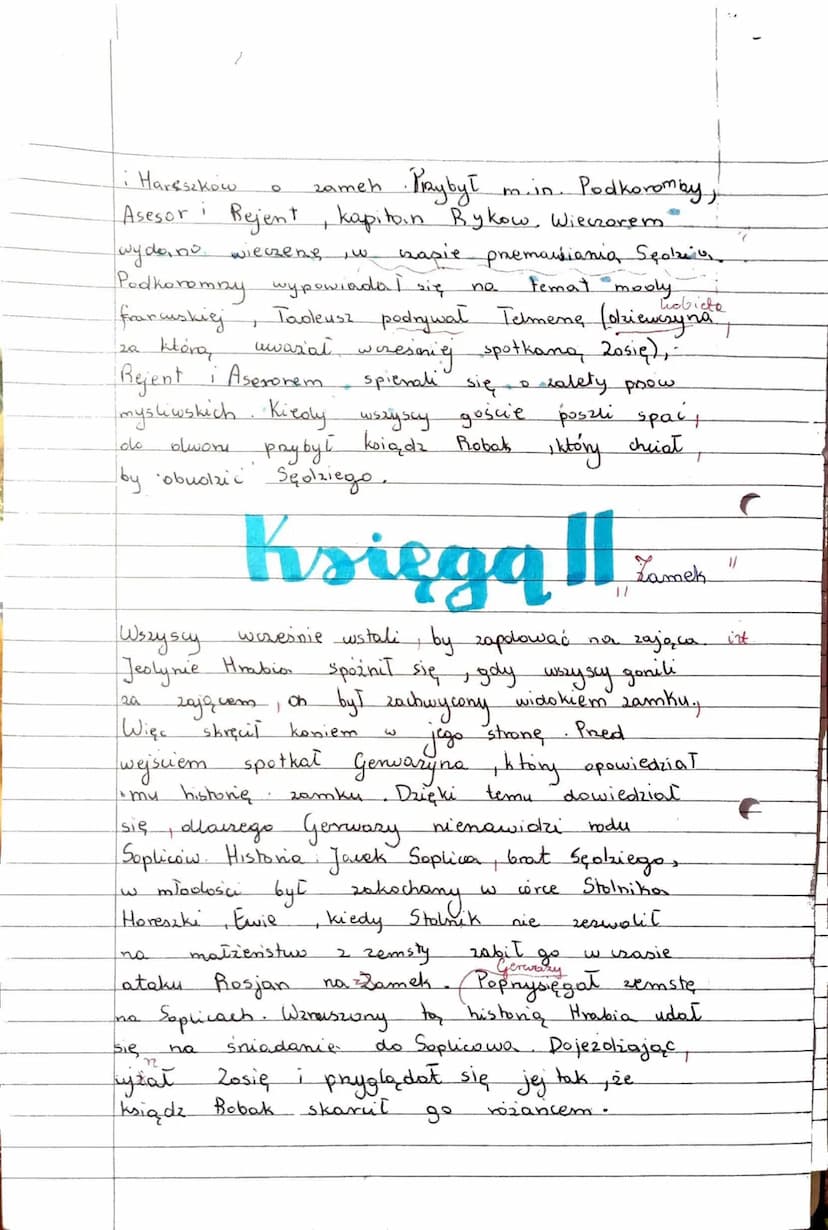 i Hareszków o zamek. Przybył m.in. Podkoromży,
Asesor i Rejent, kapitan Rykow. Wieczorem
wydano wieczerzę, w czasie przemawiania Sędzia.
Podkoromny wypowiadał się na temat mody
kobieta
francuskiej, Tadeusz podrywał Telmenę (dziewczyna,
za którą uważał wcześniej spotkaną Zosię),
Rejent i Asesorem spierali się o zalety psów
myśliwskich. Kiedy wszyscy goście poszli spać,
do dworu przybył ksiądz Robak, który chciał,
by obudzić Sędziego.
Księga II „Zamek"
Wszyscy wcześnie wstali, by zapolować na zająca.
Jedynie Hrabia spóźnił się, gdy wszyscy gonili
za zającem, on był zachwycony widokiem zamku.,
Więc skręcił koniem w jego stronę. Przed
wejściem spotkał Gerwazyna, który opowiedział
mu historię zamku. Dzięki temu dowiedział
się, dlaczego Gerwazy nienawidzi rodu
Sopliców. Historia: Jacek Soplica, brat Sędziego,
w młodości był zakochany w córce Stolnika
Horeszki, Ewie, kiedy Stolnik nie zezwolił
na małżeństwo z zemsty zabił go w czasie
Gerwazy
ataku Rosjan na Zamek. (Poprzysięgał zemstę
na Soplicach. Wzruszony tą historią Hrabia udał
się na śniadanie do Soplicowa. Dojeżdżając,
ujrzał Zosię i przyglądał się jej tak, że
ksiądz Robak skarcił go różańcem.